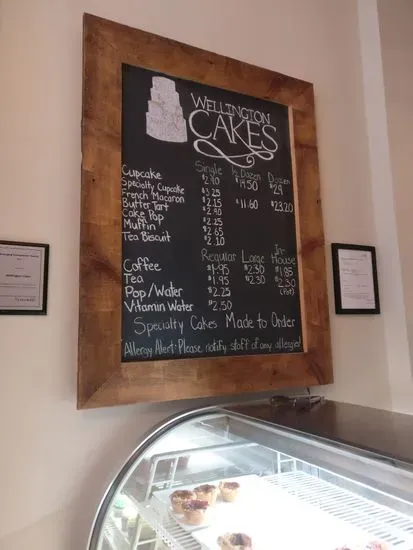 WELLINGTON
CAKES
Single ½ Dozen Dozen
Cupcake $2.90 $14.50 $29
Specialty Cupcake $3.25
French Macaron $2.15
Butter Tart $2.90 $11.60 $23.20
Cake Pop $2.25
Muffin $2.65
Tea Biscuit $2.10
Regular Large In-House
Coffee $1.95 $2.30 $1.85
Tea $1.95 $2.30 $2.30 (Pot)
Pop/Water $2.25
Vitamin Water $2.50
Specialty Cakes Made to Order
Allergy Alert: Please notify staff of any allergies!